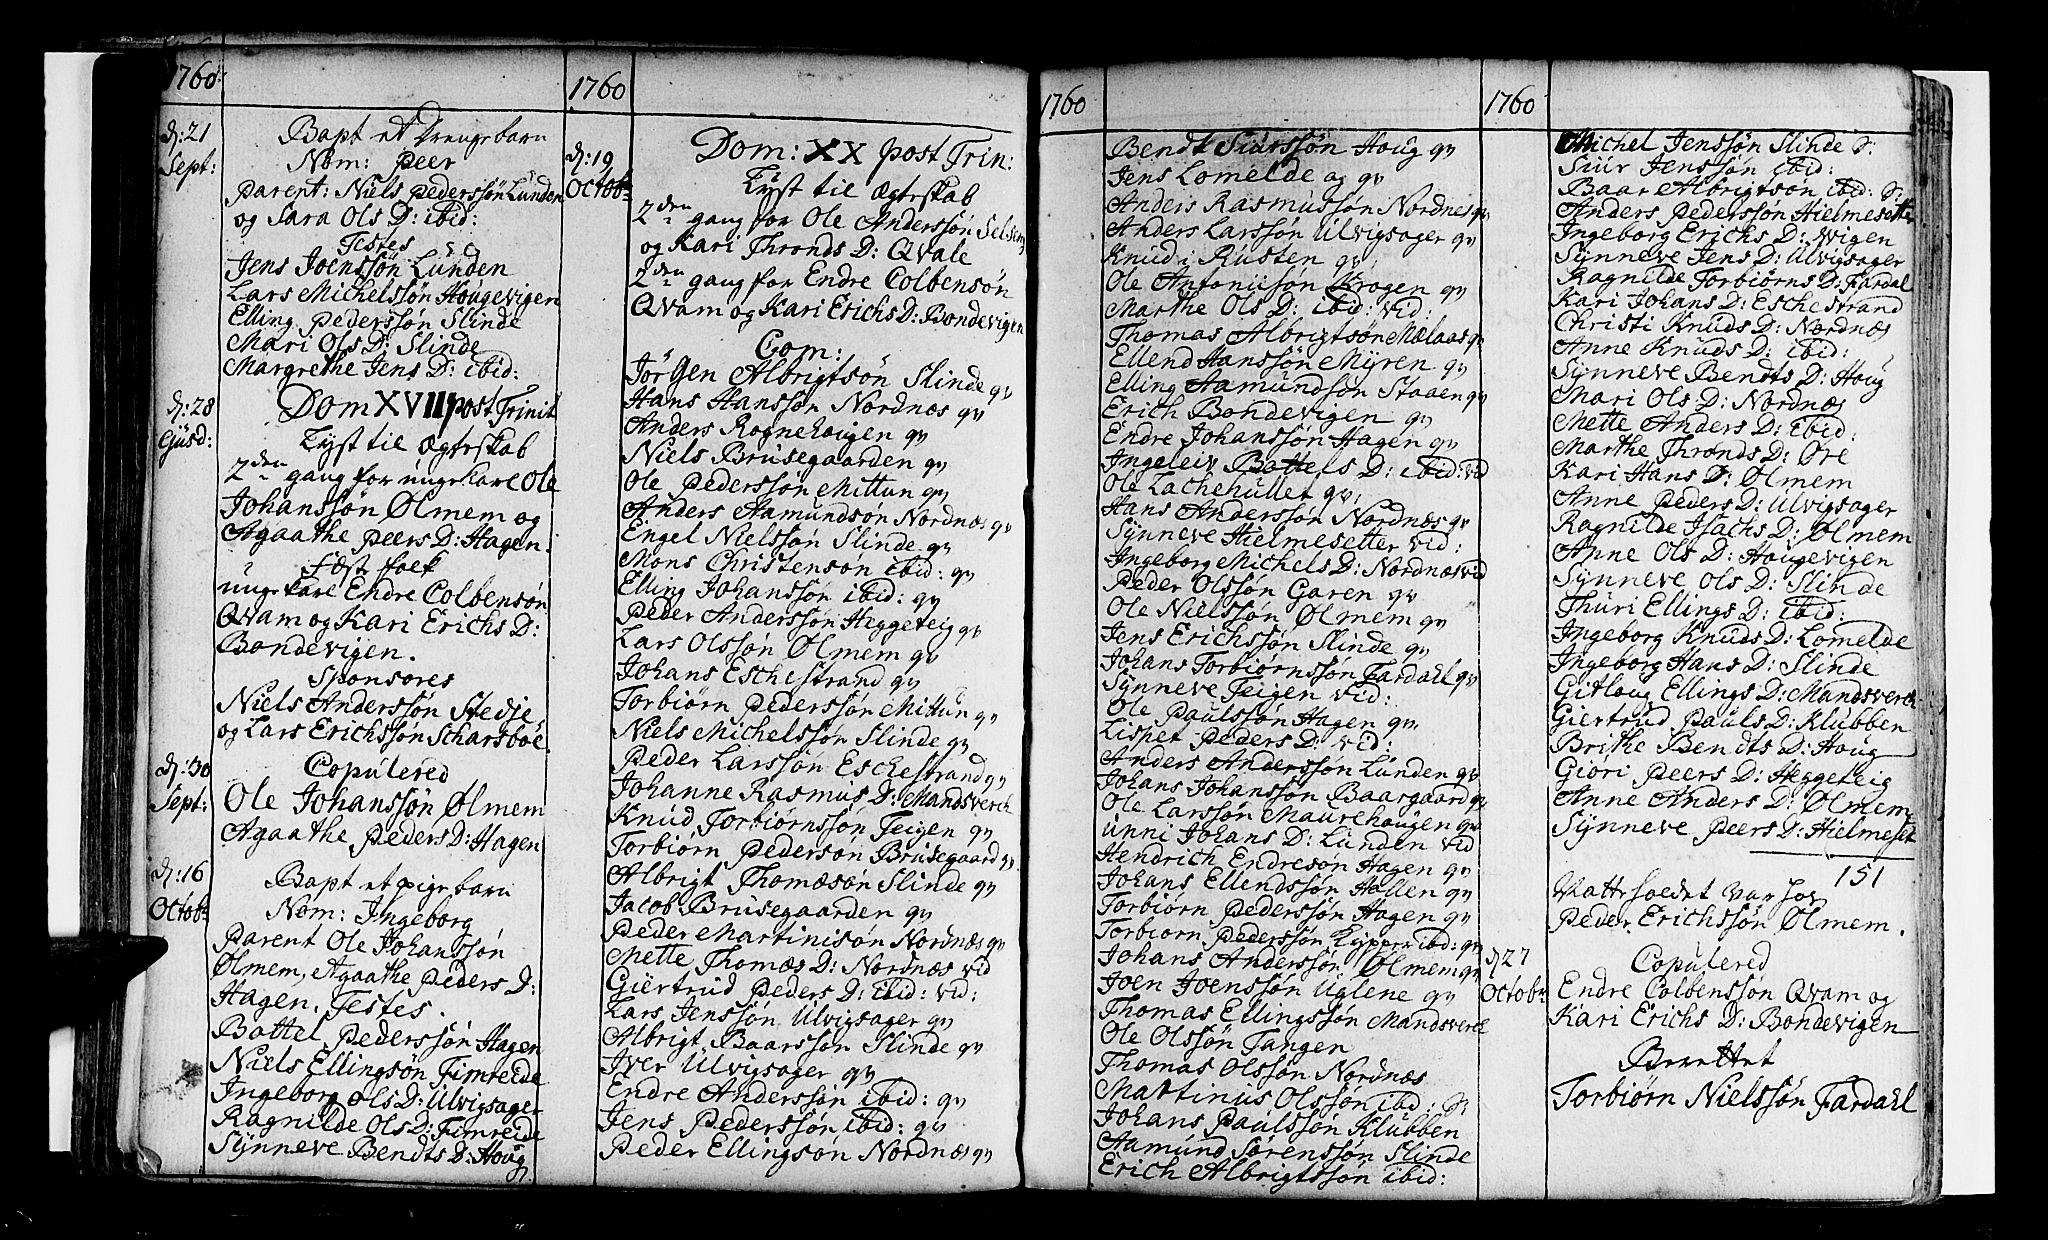 1760
d: 21 Sept:
Bapt et drengebarn
Nom: Peer
Parent: Niels Pederssøn Lunden
og Sara Ols D: ibid:
Testes
Jens Joenssøn Lunden
Lars Michelssøn Hougevigen
Elling Pederssøn Slinde
Mari Ols D: Slinde
Margrethe Jens D: ibid:
d: 28
Dom XVII post Trinit
Lyst til Ægteskab
2den gang for ungekarl Ole
Johanssøn Ølmem og
Agaathe Peers D: Hagen.
Fæst folk
ungekarl Endre Colbensøn
Qvam og Kari Erichs D:
Bondevigen.
Sponsores
Niels Anderssøn Stedje
og Lars Erichssøn Scharsboe.
d: 30 Sept:
Copulered
Ole Johanssøn Ølmem
Agaathe Peders D: Hagen
d: 16 Octobr
Bapt et pigebarn
Nom: Ingeborg
Parent Ole Johanssøn
Ølmem, Agaathe Peders D:
Hagen. Testes.
Battel Pederssøn Hagen
Niels Ellingsøn Fimreide
Ingeborg Ols D: Ulvigsager
Ragnilde Ols D: Fimreide
Synneve Bendts D: Houg
1760
d: 19 Octobr
Dom: XX post Trin:
Lyst til Ægteskab
2den gang for Ole Anderssøn Selseng
og Kari Thronds D: Qvale
2den gang for Endre Colbensøn
Qvam og Kari Erichs D: Bondevigen
Com:
Jørgen Albrigtsøn Slinde qv
Hans Hanssøn Nordnæs qv
Anders Rognehaigen qv
Niels Brusegaarden qv
Ole Pederssøn Mittun qv
Anders Aamundsøn Nordnæs qv
Engel Nielssøn Slinde qv
Mons Christenson ibid: qv
Elling Johanssøn ibid: qv
Peder Anderssøn Heggeteig qv
Lars Olssøn Ølmem qv
Johans Eschestrand qv
Torbiørn Pederssøn Mittun qv
Niels Michelssøn Slinde qv
Peder Larssøn Eschestrand qv
Johanne Rasmus D: Mandsverck
Knud Torbiørnssøn Teigen qv
Torbiørn Pedersøn Brusegaard qv
Albrigt Thomæsøn Slinde qv
Jacob Brusegaarden qv
Peder Martinisøn Nordnæs qv
Mette Thomæs D: Nordnæs vid
Giertrud Peders D: ibid: vid:
Lars Jenssøn Ulvigsager qv
Albrigt Baarssøn Slinde qv
Iver Ulvigsager qv
Endre Anderssøn ibid: qv
Jens Pederssøn ibid: qv
Peder Ellingsøn Nordnæs qv
1760
Bendt Siurssøn Houg qv
Jens Lomelde og qv
Anders Rasmussøn Nordnes qv
Anders Larssøn Ulvigsager qv
Knud i Rusten qv
Ole Antoniisøn Krogen qv
Marthe Ols D: ibid: vid:
Thomas Albrigtsøn Mælaas qv
Ellend Hanssøn Myren qv
Elling Aamundsøn Staaen qv
Erich Bondevigen qv
Endre Johanssøn Hagen qv
Ingeleiv Battels D: ibid: vid
Ole Lachehullet qv:
Hans Anderssøn Nordnæs qv
Synneve Hielmesetter vid:
Ingeborg Michels D: Nordnæs vid
Peder Olssøn Garen qv
Ole Nielssøn Ølmem qv
Jens Erichssøn Slinde qv
Johans Torbiørnssøn Fardahl qv
Synneve Teigen vid:
Ole Paulssøn Hagen qv
Lispet Peders D: vid:
Anders Anderssøn Lunden qv
Johans Johanssøn Baargaard qv
Ole Larssøn Maurehougen qv
Unni Johans D: Lunden vid
Hendrich Endresøn Hagen qv
Johans Ellendssøn Hallen qv
Torbiørn Pederssøn Hagen qv
Torbiørn Pederssøn Kypern ibid: qv
Johans Anderssøn Ølmem qv
Joen Joenssøn Uglene qv
Thomas Ellingssøn Mandsverck
Ole Olssøn Tangen
Thomas Olssøn Nordnæs
Martinus Olssøn ibd:
Johans Paulssøn Klubben
Aamund Sørenssøn Slinde
Erich Albrigtssøn ibid:
1760
Michel Jenssøn Slinde
Siur Jenssøn ibid:
Baar Albrigtsøn ibid:
Anders Pederssøn Hielmesætte
Ingeborg Erichs D: Vigen
Synneve Jens D: Ulvigsager
Ragnilde Torbiørns D: Fardal
Kari Johans D: Eschestrand
Christi Knuds D: Nordnæs
Anne Knuds D: ibid:
Synneve Bendts D: Houg
Mari Ols D: Nordnæs
Mette Anders D: ibid:
Marthe Thronds D: Øre
Kari Hans D: Ølmem
Anne Peders D: Ulvigsager
Ragnilde Isachs D: Ølmem
Anne Ols D: Hougevigen
Synneve Ols D: Slinde
Thuri Ellings D: ibid:
Ingeborg Knuds D: Lomelde
Ingeborg Hans D: Slinde
Gitloug Ellings D: Mandsverck
Giertrud Pauls D: Klubben
Brithe Bendts D: Houg
Giøri Peers D: Heggeteig
Anne Anders D: Ølmem
Synneve Peers D: Hielmeset
151
var hos
Peder Erichssøn Ølmem.
d 27 Octobr
Copulered
Endre Colbenssøn Qvam og
Kari Erichs D: Bondevigen
Berettet
Torbiørn Nielssøn Fardahl